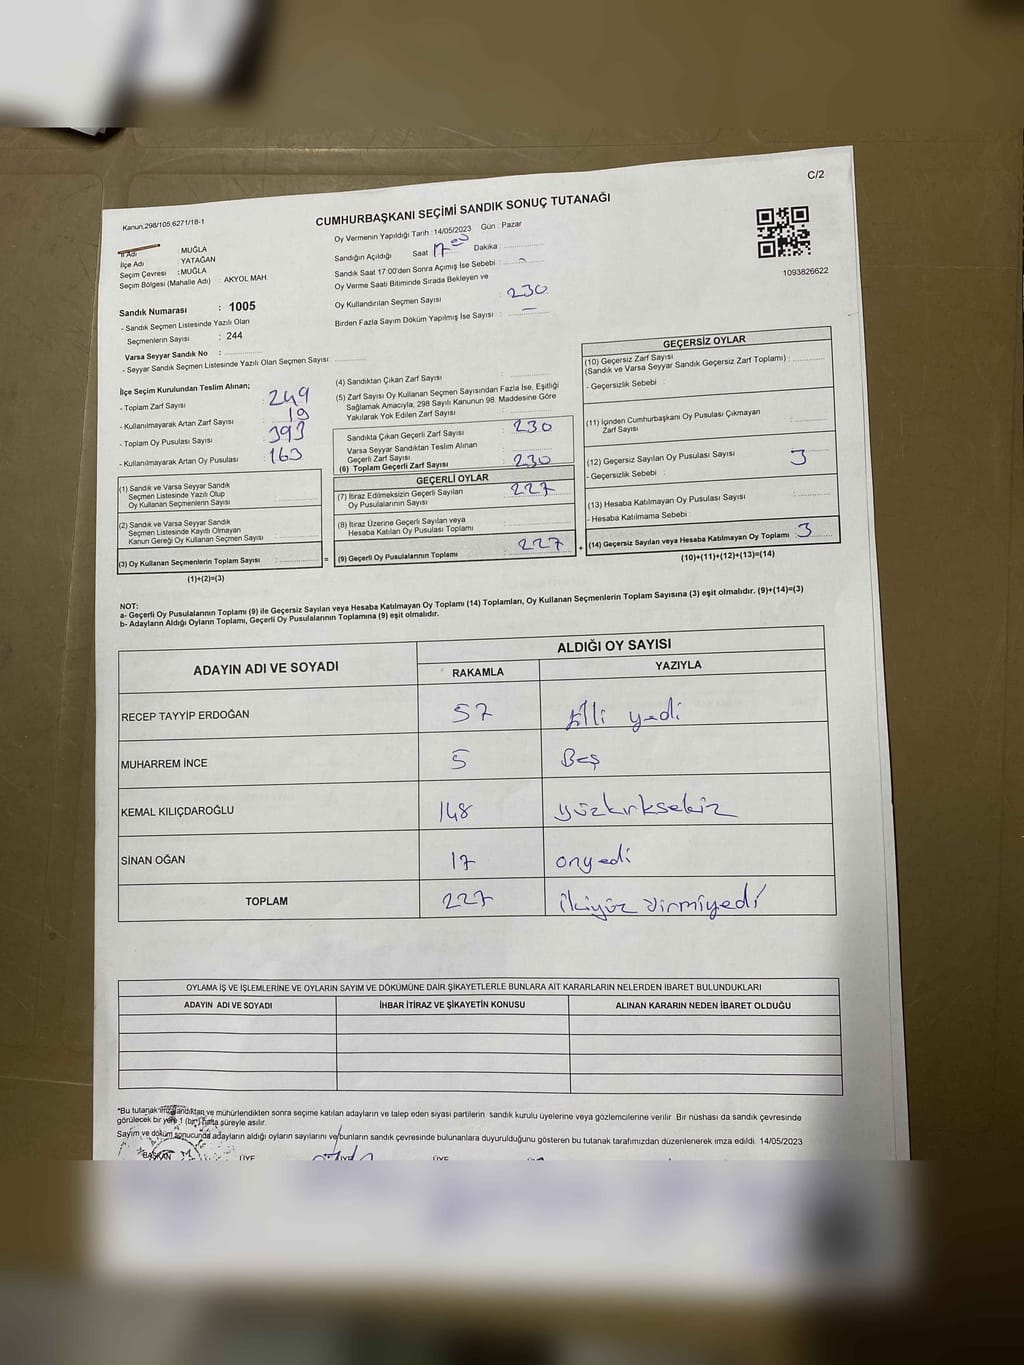 C/2
Kanun,298/105,6271/18-1
CUMHURBAŞKANI SEÇİMİ SANDIK SONUÇ TUTANAĞI
1093826622
İl Adı : MUĞLA
İlçe Adı : YATAĞAN
Seçim Çevresi : MUĞLA
Seçim Bölgesi (Mahalle Adı) : AKYOL MAH.
Sandık Numarası : 1005
- Sandık Seçmen Listesinde Yazılı Olan
Seçmenlerin Sayısı : 244
Varsa Seyyar Sandık No :
- Seyyar Sandık Seçmen Listesinde Yazılı Olan Seçmen Sayısı:
Oy Vermenin Yapıldığı Tarih : 14/05/2023 Gün : Pazar
Sandığın Açıldığı Saat 17 00 Dakika :
Sandık Saat 17:00'den Sonra Açımış İse Sebebi :
Oy Verme Saati Bitiminde Sırada Bekleyen ve
Oy Kullandırılan Seçmen Sayısı : 230
Birden Fazla Sayım Döküm Yapılmış İse Sayısı : —
İlçe Seçim Kurulundan Teslim Alınan;
- Toplam Zarf Sayısı : 249
- Kullanılmayarak Artan Zarf Sayısı : 19
- Toplam Oy Pusulası Sayısı : 393
- Kullanılmayarak Artan Oy Pusulası : 163
(1) Sandık ve Varsa Seyyar Sandık
Seçmen Listesinde Yazılı Olup
Oy Kullanan Seçmenlerin Sayısı :
(2) Sandık ve Varsa Seyyar Sandık
Seçmen Listesinde Kayıtlı Olmayan
Kanun Gereği Oy Kullanan Seçmen Sayısı :
(3) Oy Kullanan Seçmenlerin Toplam Sayısı :
(1)+(2)=(3)
(4) Sandıktan Çıkan Zarf Sayısı :
(5) Zarf Sayısı Oy Kullanan Seçmen Sayısından Fazla İse, Eşitliği
Sağlamak Amacıyla, 298 Sayılı Kanunun 98. Maddesine Göre
Yakılarak Yok Edilen Zarf Sayısı :
Sandıkta Çıkan Geçerli Zarf Sayısı : 230
Varsa Seyyar Sandıktan Teslim Alınan
Geçerli Zarf Sayısı :
(6) Toplam Geçerli Zarf Sayısı : 230
GEÇERLİ OYLAR
(7) İtiraz Edilmeksizin Geçerli Sayılan
Oy Pusulalarının Sayısı : 227
(8) İtiraz Üzerine Geçerli Sayılan veya
Hesaba Katılan Oy Pusulası Toplamı :
= (9) Geçerli Oy Pusulalarının Toplamı : 227 +
GEÇERSİZ OYLAR
(10) Geçersiz Zarf Sayısı
(Sandık ve Varsa Seyyar Sandık Geçersiz Zarf Toplamı) :
- Geçersizlik Sebebi :
(11) İçinden Cumhurbaşkanı Oy Pusulası Çıkmayan
Zarf Sayısı :
(12) Geçersiz Sayılan Oy Pusulası Sayısı : 3
- Geçersizlik Sebebi :
(13) Hesaba Katılmayan Oy Pusulası Sayısı :
- Hesaba Katılmama Sebebi :
(14) Geçersiz Sayılan veya Hesaba Katılmayan Oy Toplamı : 3
(10)+(11)+(12)+(13)=(14)
NOT:
a- Geçerli Oy Pusulalarının Toplamı (9) ile Geçersiz Sayılan veya Hesaba Katılmayan Oy Toplamı (14) Toplamları, Oy Kullanan Seçmenlerin Toplam Sayısına (3) eşit olmalıdır. (9)+(14)=(3)
b- Adayların Aldığı Oyların Toplamı, Geçerli Oy Pusulalarının Toplamına (9) eşit olmalıdır.
ADAYIN ADI VE SOYADI
ALDIĞI OY SAYISI
RAKAMLA YAZIYLA
RECEP TAYYİP ERDOĞAN 57 Elli yedi
MUHARREM İNCE 5 Beş
KEMAL KILIÇDAROĞLU 148 yüzkırksekiz
SİNAN OĞAN 17 onyedi
TOPLAM 227 ikiyüz yirmiyedi
OYLAMA İŞ VE İŞLEMLERİNE VE OYLARIN SAYIM VE DÖKÜMÜNE DAİR ŞİKAYETLERLE BUNLARA AİT KARARLARIN NELERDEN İBARET BULUNDUKLARI
ADAYIN ADI VE SOYADI İHBAR İTİRAZ VE ŞİKAYETİN KONUSU ALINAN KARARIN NEDEN İBARET OLDUĞU
*Bu tutanak imzalandıktan ve mühürlendikten sonra seçime katılan adayların ve talep eden siyasi partilerin sandık kurulu üyelerine veya gözlemcilerine verilir. Bir nüshası da sandık çevresinde
görülecek bir yere 1 (bir) hafta süreyle asılır.
Sayım ve döküm sonucunda adayların aldığı oyların sayılarını ve bunların sandık çevresinde bulunanlara duyurulduğunu gösteren bu tutanak tarafımızdan düzenlenerek imza edildi. 14/05/2023
BAŞKAN ÜYE ÜYE ÜYE